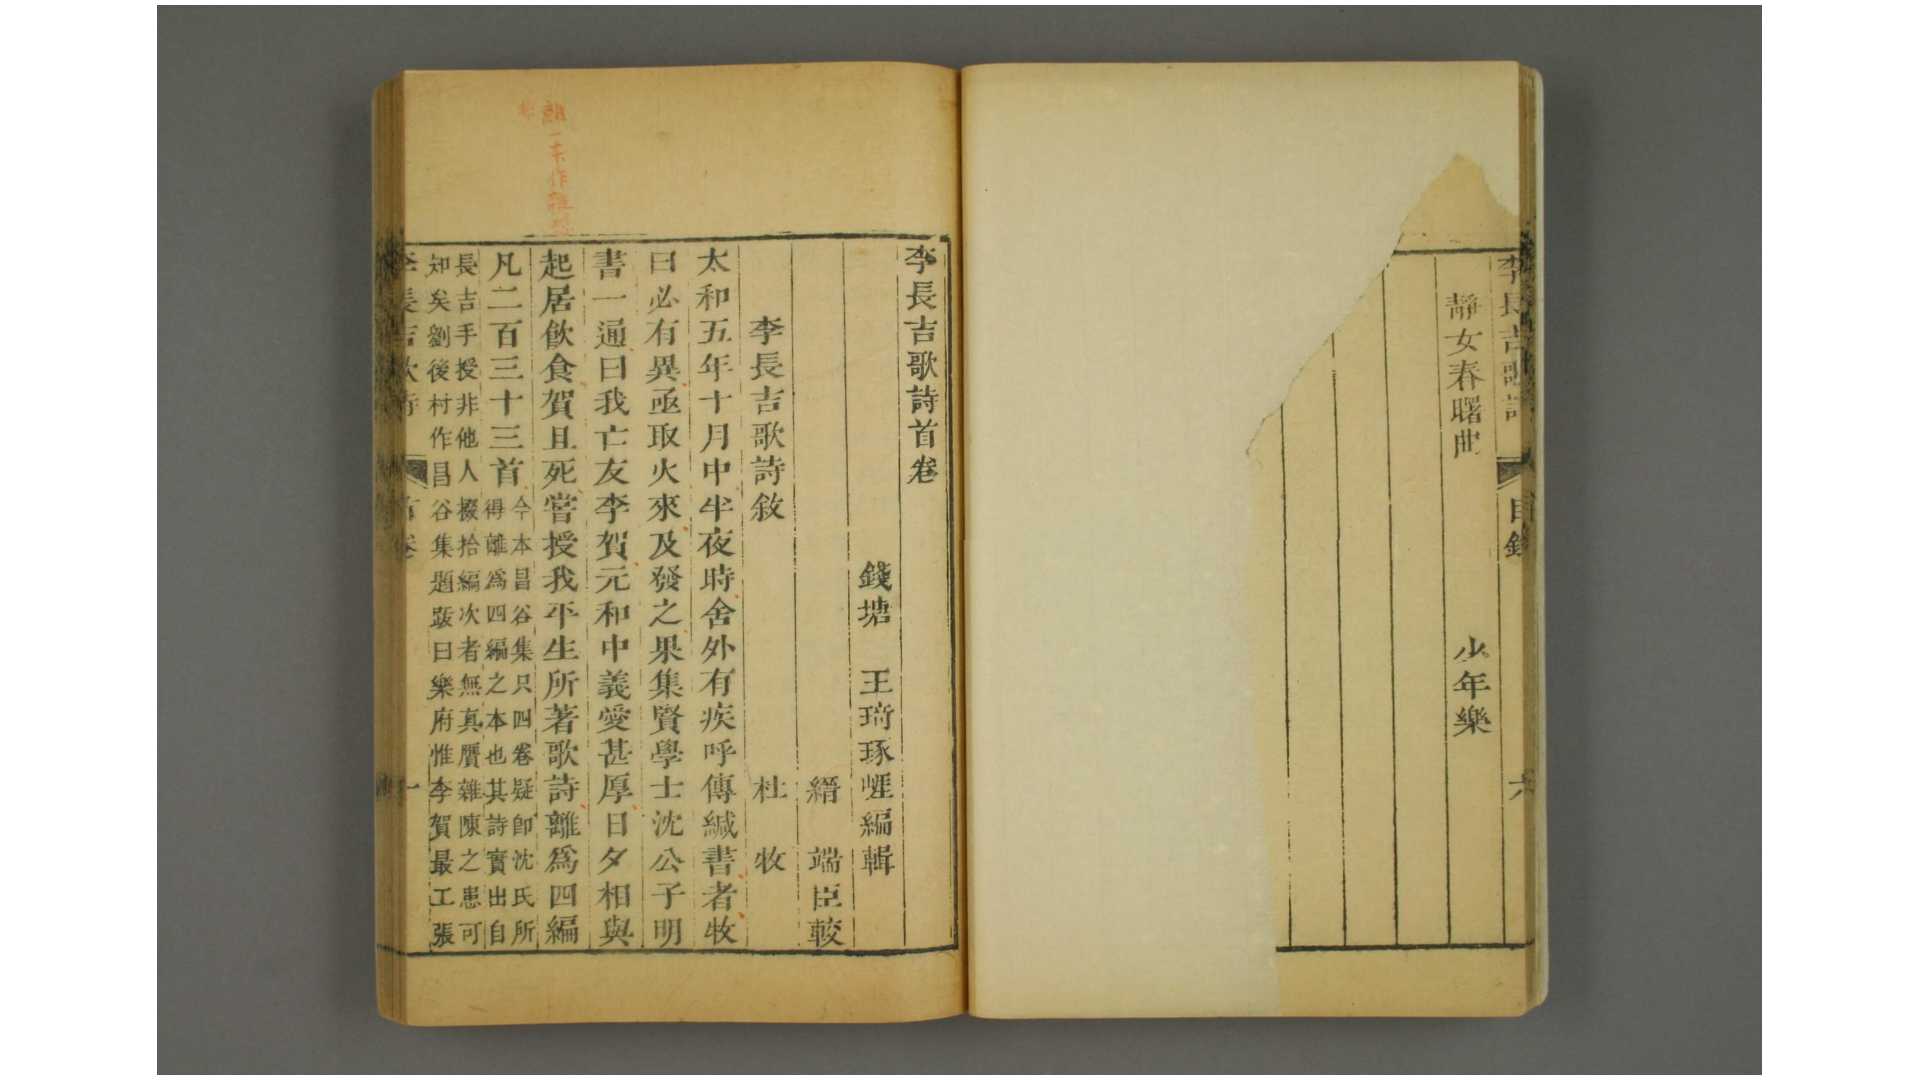 李長吉歌詩
目錄
六
靜女春曙曲
少年樂
李長吉歌詩首卷
錢塘 王琦琢崖編輯
縉 端臣較
李長吉歌詩敘
杜 牧
太和五年十月中半夜時舍外有疾呼傳緘書者牧
曰必有異亟取火來及發之果集賢學士沈公子明
書一通曰我亡友李賀元和中義愛甚厚日夕相與
起居飲食賀且死嘗授我平生所著歌詩離為四編
凡二百三十三首
今本昌谷集只四卷疑卽沈氏所
得離為四編之本也其詩實出自
長吉手授非他人掇拾編次者無真贋雜陳之患可
知矣劉後村作昌谷集題跋曰樂府惟李賀最工張
李長吉歌詩
首卷
一
一本作離